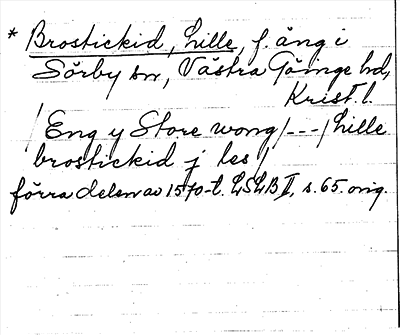 * Brostickid, Lille, f. äng i
Sörby sn, Västra Göinge hd,
Krist. l.
/Eng y Store wong/---/Lille
brostickid j les/,
förra delen av 1570-t. LSLB II, s. 65. orig.